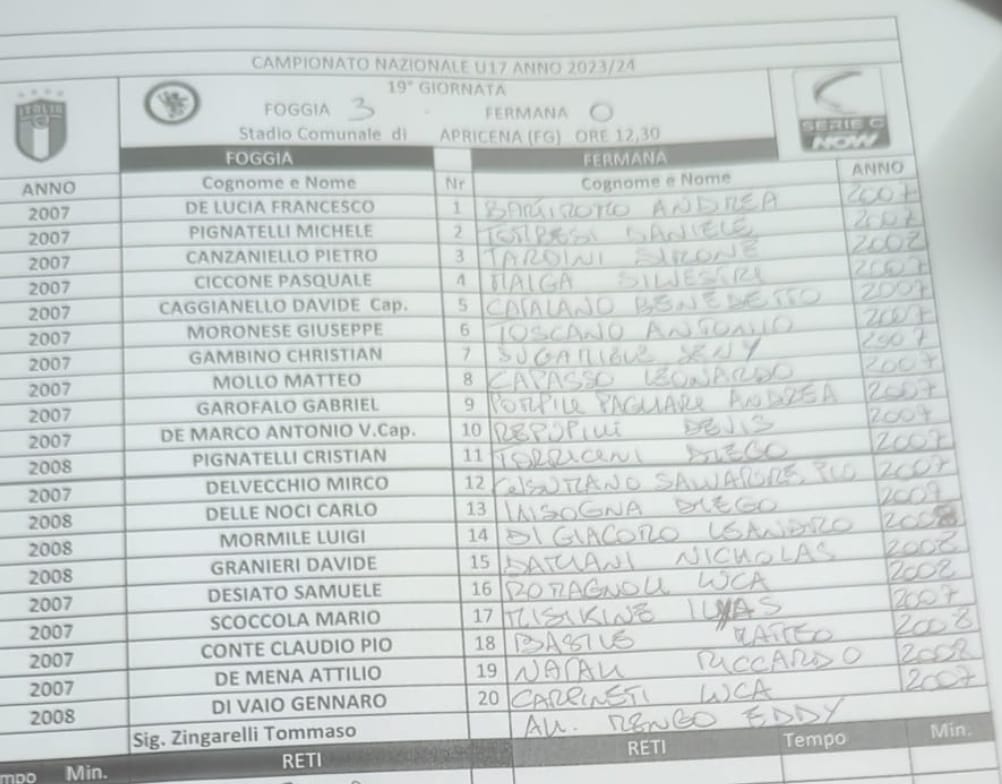 CAMPIONATO NAZIONALE U17 ANNO 2023/24
19° GIORNATA
ITALIA
FOGGIA 3 - FERMANA 0
SERIE C
NOW
Stadio Comunale di APRICENA (FG) ORE 12,30
FOGGIA FERMANA
ANNO Cognome e Nome Nr Cognome e Nome ANNO
2007 DE LUCIA FRANCESCO 1 ANDREA 2007
2007 PIGNATELLI MICHELE 2 TORRESI DANIELE 2007
2007 CANZANIELLO PIETRO 3 TARDINI SIMONE
2007 CICCONE PASQUALE 4 MALGA SILVESTRI 2007
2007 CAGGIANELLO DAVIDE Cap. 5 CATALANO BENEDETTO 2007
2007 MORONESE GIUSEPPE 6 TOSCANO ANTONIO 2007
2007 GAMBINO CHRISTIAN 7 2007
2007 MOLLO MATTEO 8 CAPASSO LEONARDO 2007
2007 GAROFALO GABRIEL 9 PAGLIARI ANDREA 2007
2007 DE MARCO ANTONIO V.Cap. 10 DENIS 2007
2008 PIGNATELLI CRISTIAN 11 DIEGO 2007
2007 DELVECCHIO MIRCO 12 PIO 2007
2008 DELLE NOCI CARLO 13 INSOGNA DIEGO 2007
2008 MORMILE LUIGI 14 DI GIACOMO LEANDRO 2008
2008 GRANIERI DAVIDE 15 DAMIANI NICHOLAS 2008
2007 DESIATO SAMUELE 16 ROMAGNOLI LUCA 2008
2007 SCOCCOLA MARIO 17 MISIKINE ILYAS 2007
2007 CONTE CLAUDIO PIO 18 MATTEO 2008
2007 DE MENA ATTILIO 19 NATALI RICCARDO 2008
2008 DI VAIO GENNARO 20 CARPINETI LUCA 2007
Sig. Zingarelli Tommaso All. RENGO EDDY
Min. RETI RETI Tempo Min.